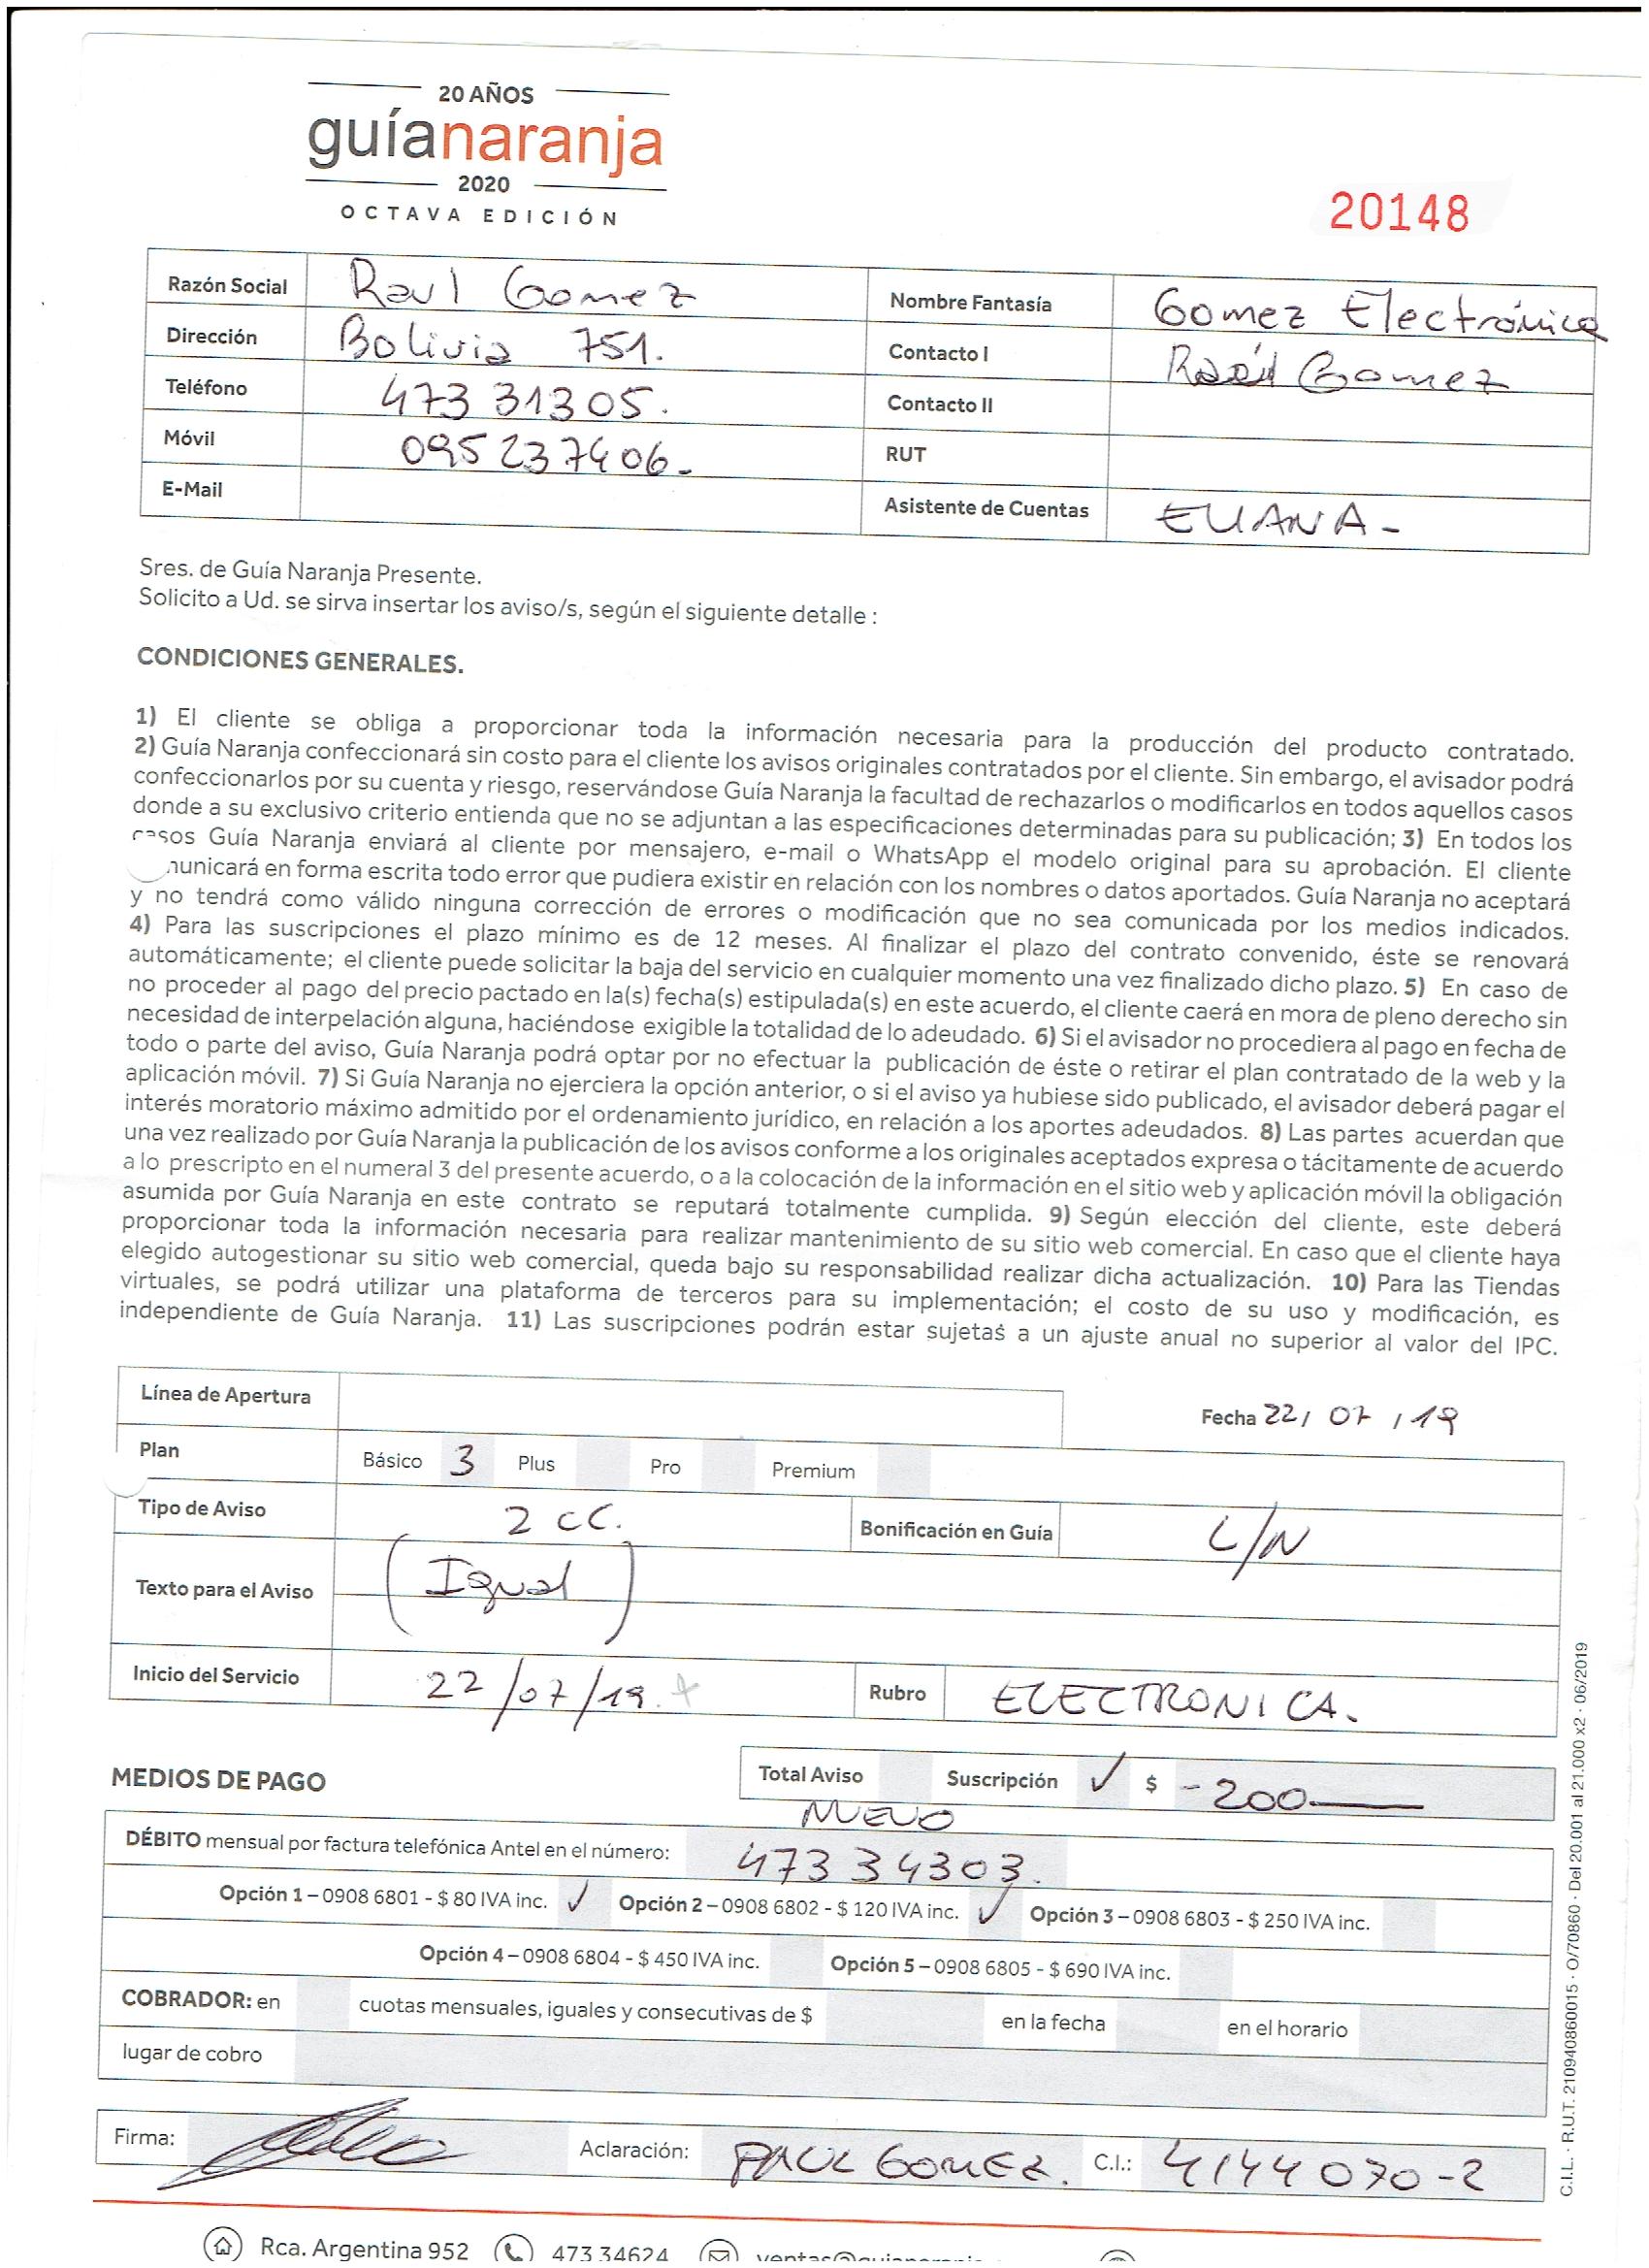 20 AÑOS
guíanaranja
2020
OCTAVA EDICIÓN
20148
Razón Social Raul Gomez Nombre Fantasía Gomez Electrónica
Dirección Bolivia 751. Contacto I Raúl Gomez
Teléfono 473 31305. Contacto II
Móvil 095 237406- RUT
E-Mail Asistente de Cuentas ELIANA-
Sres. de Guía Naranja Presente.
Solicito a Ud. se sirva insertar los aviso/s, según el siguiente detalle :
CONDICIONES GENERALES.
1) El cliente se obliga a proporcionar toda la información necesaria para la producción del producto contratado.
2) Guía Naranja confeccionará sin costo para el cliente los avisos originales contratados por el cliente. Sin embargo, el avisador podrá
confeccionarlos por su cuenta y riesgo, reservándose Guía Naranja la facultad de rechazarlos o modificarlos en todos aquellos casos
donde a su exclusivo criterio entienda que no se adjuntan a las especificaciones determinadas para su publicación; 3) En todos los
casos Guía Naranja enviará al cliente por mensajero, e-mail o WhatsApp el modelo original para su aprobación. El cliente
municará en forma escrita todo error que pudiera existir en relación con los nombres o datos aportados. Guía Naranja no aceptará
y no tendrá como válido ninguna corrección de errores o modificación que no sea comunicada por los medios indicados.
4) Para las suscripciones el plazo mínimo es de 12 meses. Al finalizar el plazo del contrato convenido, éste se renovará
automáticamente; el cliente puede solicitar la baja del servicio en cualquier momento una vez finalizado dicho plazo. 5) En caso de
no proceder al pago del precio pactado en la(s) fecha(s) estipulada(s) en este acuerdo, el cliente caerá en mora de pleno derecho sin
necesidad de interpelación alguna, haciéndose exigible la totalidad de lo adeudado. 6) Si el avisador no procediera al pago en fecha de
todo o parte del aviso, Guía Naranja podrá optar por no efectuar la publicación de éste o retirar el plan contratado de la web y la
aplicación móvil. 7) Si Guía Naranja no ejerciera la opción anterior, o si el aviso ya hubiese sido publicado, el avisador deberá pagar el
interés moratorio máximo admitido por el ordenamiento jurídico, en relación a los aportes adeudados. 8) Las partes acuerdan que
una vez realizado por Guía Naranja la publicación de los avisos conforme a los originales aceptados expresa o tácitamente de acuerdo
a lo prescripto en el numeral 3 del presente acuerdo, o a la colocación de la información en el sitio web y aplicación móvil la obligación
asumida por Guía Naranja en este contrato se reputará totalmente cumplida. 9) Según elección del cliente, este deberá
proporcionar toda la información necesaria para realizar mantenimiento de su sitio web comercial. En caso que el cliente haya
elegido autogestionar su sitio web comercial, queda bajo su responsabilidad realizar dicha actualización. 10) Para las Tiendas
virtuales, se podrá utilizar una plataforma de terceros para su implementación; el costo de su uso y modificación, es
independiente de Guía Naranja. 11) Las suscripciones podrán estar sujetas a un ajuste anual no superior al valor del IPC.
Línea de Apertura Fecha 22/ 07 / 19
Plan Básico 3 Plus Pro Premium
Tipo de Aviso 2 CC. Bonificación en Guía L/N
Texto para el Aviso (Igual)
Inicio del Servicio 22/07/19. Rubro ELECTRONICA.
MEDIOS DE PAGO Total Aviso Suscripción ✓ $ -200
NUEVO
DÉBITO mensual por factura telefónica Antel en el número: 473 34303.
Opción 1 – 0908 6801 - $ 80 IVA inc. ✓ Opción 2 – 0908 6802 - $ 120 IVA inc. ✓ Opción 3 – 0908 6803 - $ 250 IVA inc.
Opción 4 – 0908 6804 - $ 450 IVA inc. Opción 5 – 0908 6805 - $ 690 IVA inc.
COBRADOR: en cuotas mensuales, iguales y consecutivas de $ en la fecha en el horario
lugar de cobro
Firma: Aclaración: RAUL GOMEZ. C.I.: 4144070-2
C.I.L. · R.U.T. 210940860015 · O/70860 · Del 20.001 al 21.000 x2 · 06/2019
Rca. Argentina 952 473 34624